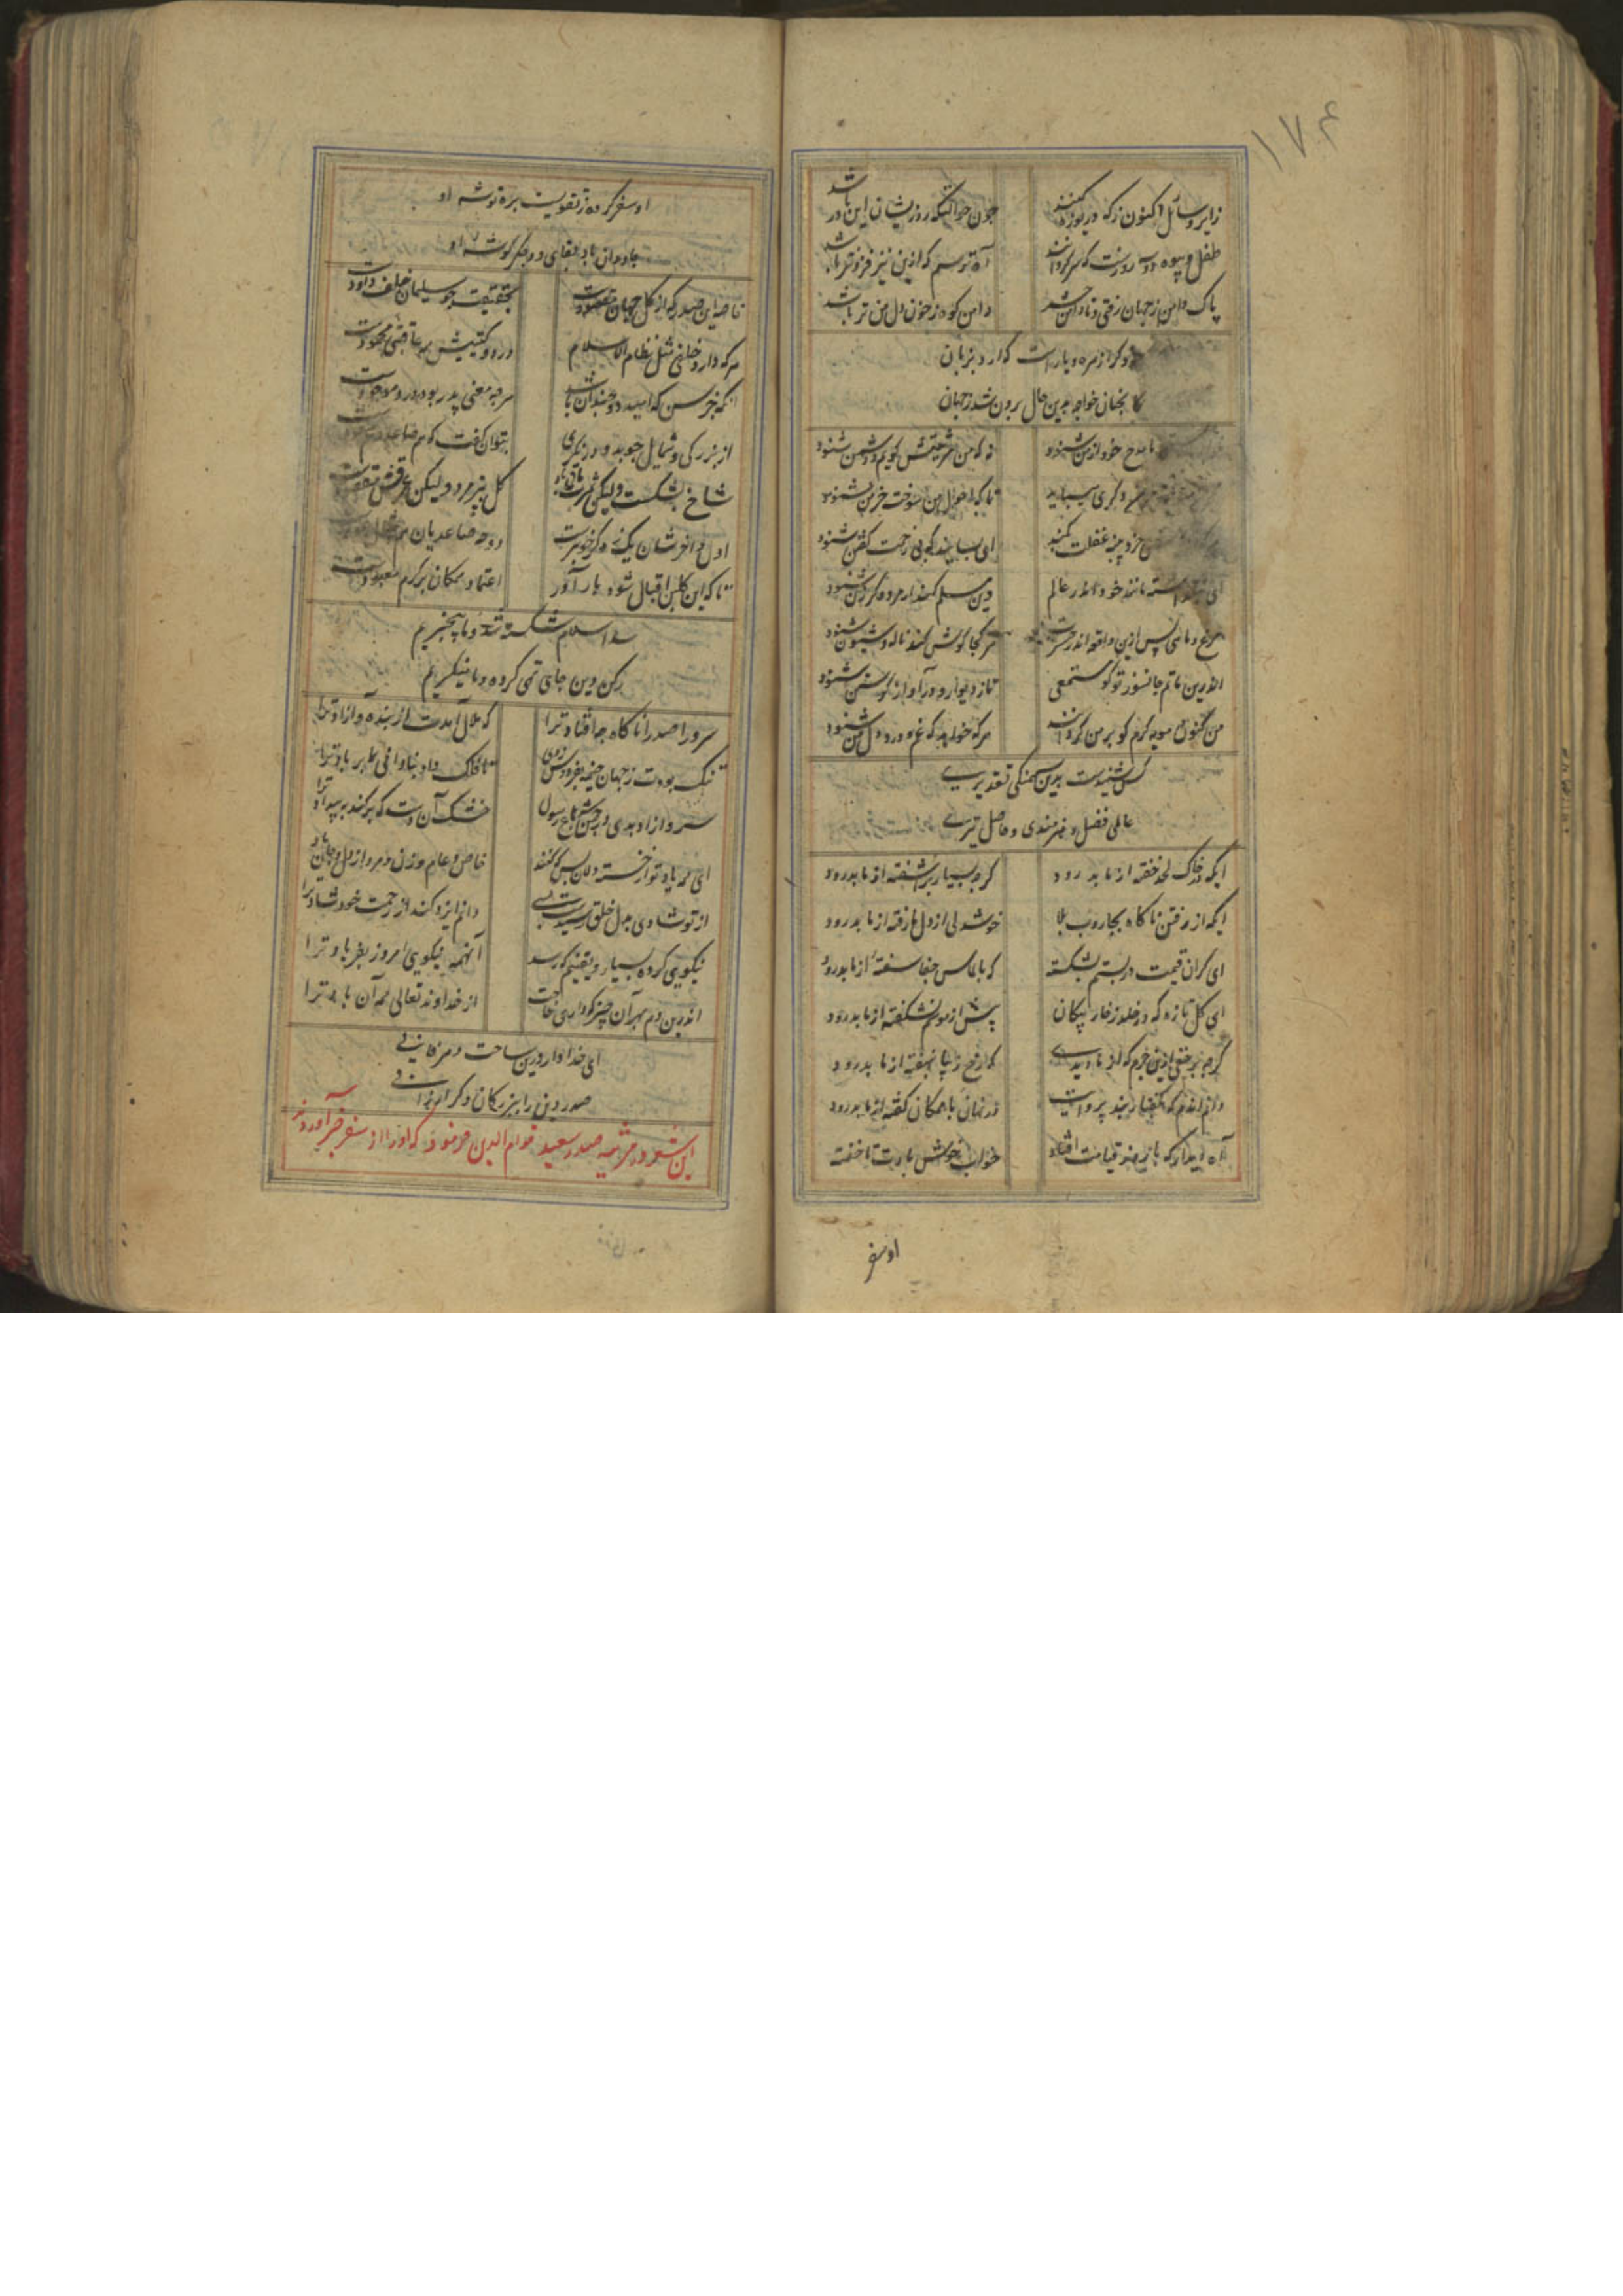 ۱۷۴
زایر و سائل اکنون ز که دریوزه کنند
چون خوالیکه روزیشان این در باشد
طفل و بیوه دو سه روزست که سرگردانند
آه ترسم که ازین نیز فزونتر باشد
پاک دامن ز جهان رفتی و نادان شد
دامن کوه ز خون دل من تر باشد
ذکر از مره و یاراست که آرد بزبان
کانچنان خواجه بدین حال برون شد ز جهان
تا مدح خود از من شنود
نه که من مرثیتش گویم و دشمن شنود
دگری میباید
تا که احوال من سوخته خرمن شنود
پنبه غفلت کند
ای بسا پند که بی زحمت گفتن شنود
مانند خود اندر عالم
مرغ و ماهی پس ازین واقعه اندر حسرت
هر کجا گوش کند ناله و شیون شنود
اندرین ماتم جانسوز تو گو مستمعی
تا ز دیوار و در آواز شنود
من کنون مویه گرم کو بر من گرد آیند
هر که خواهد که غم و درد دل من شنود
کس شنیدست بدین سهمگنی تقدیری
عالمی فضل و هنرمندی و حاصل تیری
ایکه در خاک لحد خفته از ما بدرود
گرد بسیار بر آشفته از ما بدرود
ایکه از رفتن ناکاه بجاروب بلا
خوشدلی از دل ما رفته از ما بدرود
ای گران قیمت در بستم بشکسته
که بالماس جفا سفته از ما بدرود
ای گل تازه که در خلد ز خار پیکان
پیش از موسم بشکفته از ما بدرود
گرچه برخفتی ازین جرم که از ما دیدی
که رخ از ما نهفته از ما بدرود
دانم اندم که بگفتار نبد پروایت
در نهان با همگان گفته از ما بدرود
آه دیدار که با روز قیامت افتاد
خواب خوش بادت تا خفت
او سفر
او سفر کرده ز تقویت بره توشه او
جاودان باد بقای دو جگر گوشه او
خاصه این صدر که از کل جهان مقصودست
بحقیقت چو سلیمان خلف داودست
هر که دارد خلفی مثل نظام الاسلام
در دو گیتیش همه عاقبتی محمودست
هر چه معنی پدر بود درو موجودست
از بزرگی و شمایل چو بدو در نگری
بتوان گفت که هم صاعد
شاخ بشکست ولیکن ثمرت باقی باد
گل بپژمرد ولیکن عرقش مقصودست
اول و آخرشان یک ز دگر خوبترست
دوحه صاعدیان هم
تا که این گلبن اقبال شود بار آور
اعتماد همگان بر کرم معبودست
سد اسلام شکسته شد و ما بیخبریم
رکن دین جای تهی کرده و ما مینگریم
سرورا صدرا ناکاه چه افتاد ترا
که ملال آمدت از بنده و آزاد ترا
تنک بودت ز جهان خیمه بفردوس زدی
تا فلک داد بناوافی
سرو آزاد بدی در چمن باغ رسول
خشک آن دست که برکند ز بیداد ترا
ای همه یاد تو از خسته دلان بس که کنند
خاص و عام و زن و مرد از دل و جان یاد ترا
از تو شادی بدل خلق رسیدست بسی
دانم ایزد کند از رحمت خود شاد ترا
نیکویی کرده بسیار و یقینم که رسد
آنهمه نیکویی امروز بفریاد ترا
اندرین دم بهر آن چیز که داری حاجت
از خداوند تعالی همه آن باد ترا
ای خدا وارد این ساحت
صدر دین را ببزرگان دگر ارزانی
این شعر در مرثیه صدر سعید قوام الدین فرمود که او را از سفر خبر آوردند